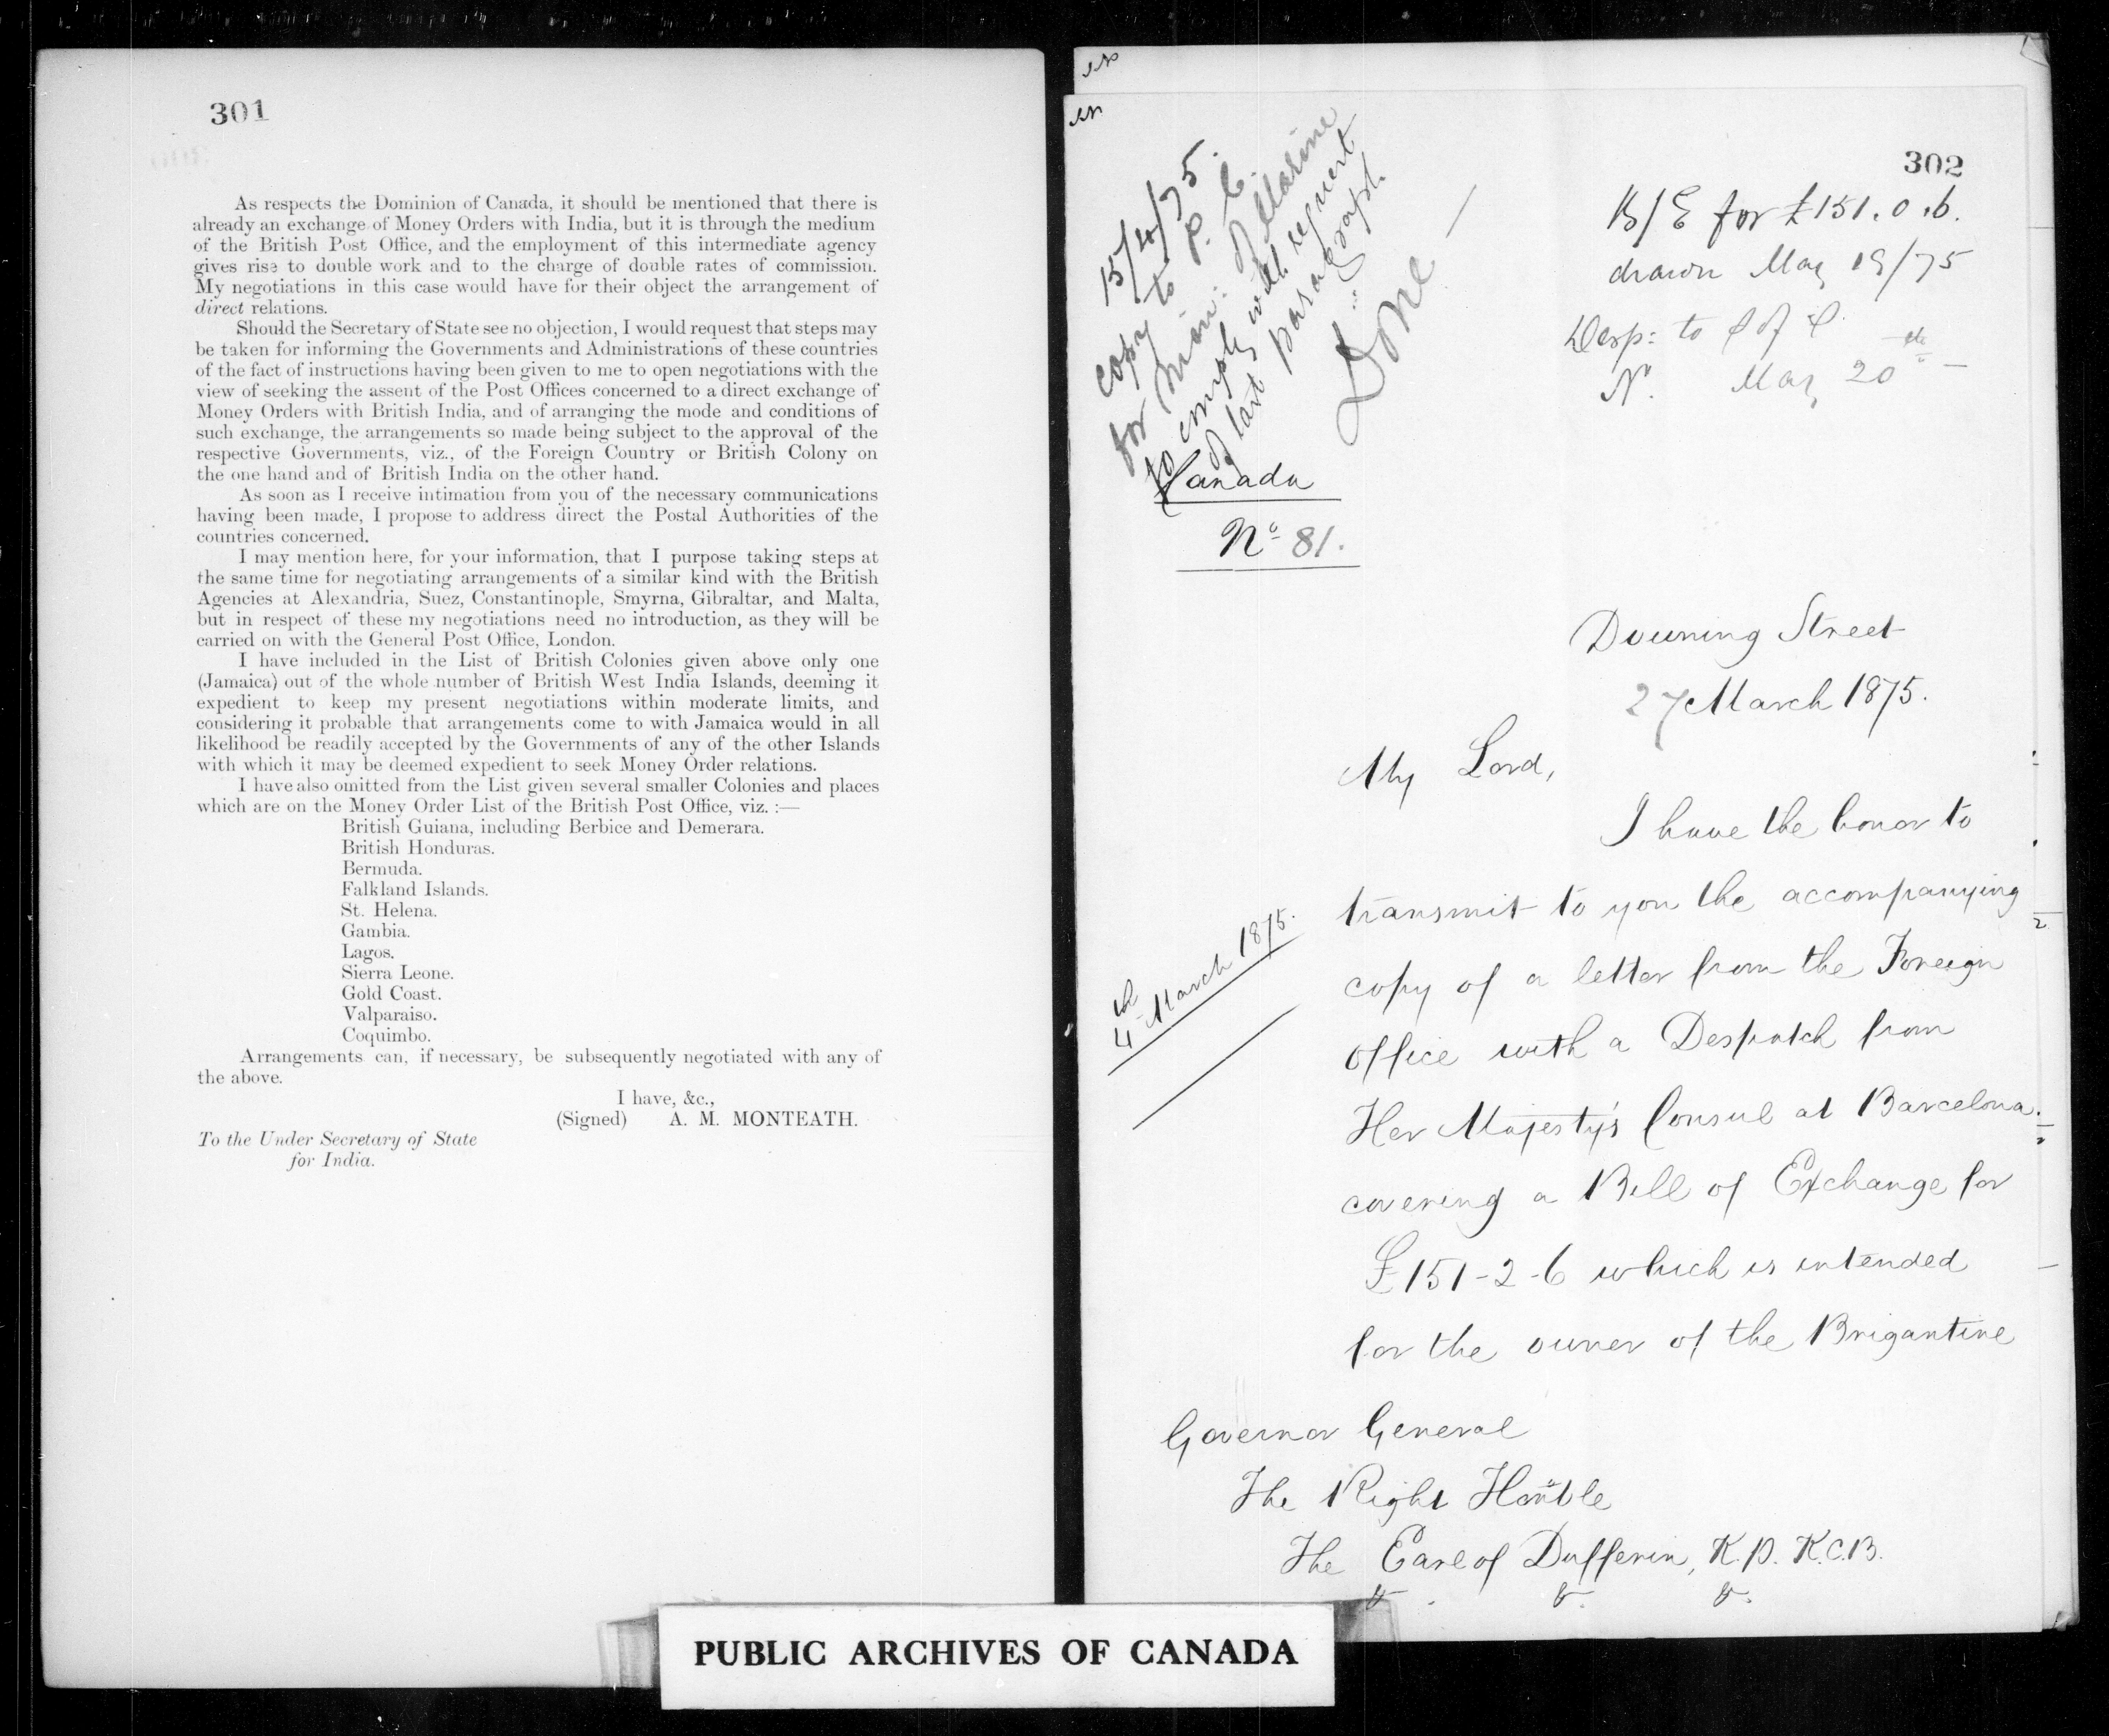 301
As respects the Dominion of Canada, it should be mentioned that there is
already an exchange of Money Orders with India, but it is through the medium
of the British Post Office, and the employment of this intermediate agency
gives rise to double work and to the charge of double rates of commission.
My negotiations in this case would have for their object the arrangement of
direct relations.
Should the Secretary of State see no objection, I would request that steps may
be taken for informing the Governments and Administrations of these countries
of the fact of instructions having been given to me to open negotiations with the
view of seeking the assent of the Post Offices concerned to a direct exchange of
Money Orders with British India, and of arranging the mode and conditions of
such exchange, the arrangements so made being subject to the approval of the
respective Governments, viz., of the Foreign Country or British Colony on
the one hand and of British India on the other hand.
As soon as I receive intimation from you of the necessary communications
having been made, I propose to address direct the Postal Authorities of the
countries concerned.
I may mention here, for your information, that I purpose taking steps at
the same time for negotiating arrangements of a similar kind with the British
Agencies at Alexandria, Suez, Constantinople, Smyrna, Gibraltar, and Malta,
but in respect of these my negotiations need no introduction, as they will be
carried on with the General Post Office, London.
I have included in the List of British Colonies given above only one
(Jamaica) out of the whole number of British West India Islands, deeming it
expedient to keep my present negotiations within moderate limits, and
considering it probable that arrangements come to with Jamaica would in all
likelihood be readily accepted by the Governments of any of the other Islands
with which it may be deemed expedient to seek Money Order relations.
I have also omitted from the List given several smaller Colonies and places
which are on the Money Order List of the British Post Office, viz. :—
British Guiana, including Berbice and Demerara.
British Honduras.
Bermuda.
Falkland Islands.
St. Helena.
Gambia.
Lagos.
Sierra Leone.
Gold Coast.
Valparaiso.
Coquimbo.
Arrangements can, if necessary, be subsequently negotiated with any of
the above.
I have, &c.,
(Signed) A. M. MONTEATH.
To the Under Secretary of State
for India.
302
15/4/75.
Copy to P. C.
for Min: of Marine
to comply with request
of last paragraph.
Done
B/E for £151.0.6.
drawn May 19/75
Desp: to
No. May 20th
Canada
No 81.
Downing Street
27 March 1875.
My Lord,
I have the honor to
transmit to you the accompanying
4th March 1875.
copy of a letter from the Foreign
Office with a Despatch from
Her Majesty's Consul at Barcelona
covering a Bill of Exchange for
£151-2-6 which is intended
for the owner of the Brigantine
Governor General
The Right Honble
The Earl of Dufferin, K.P. K.C.B.
&. &. &.
PUBLIC ARCHIVES OF CANADA